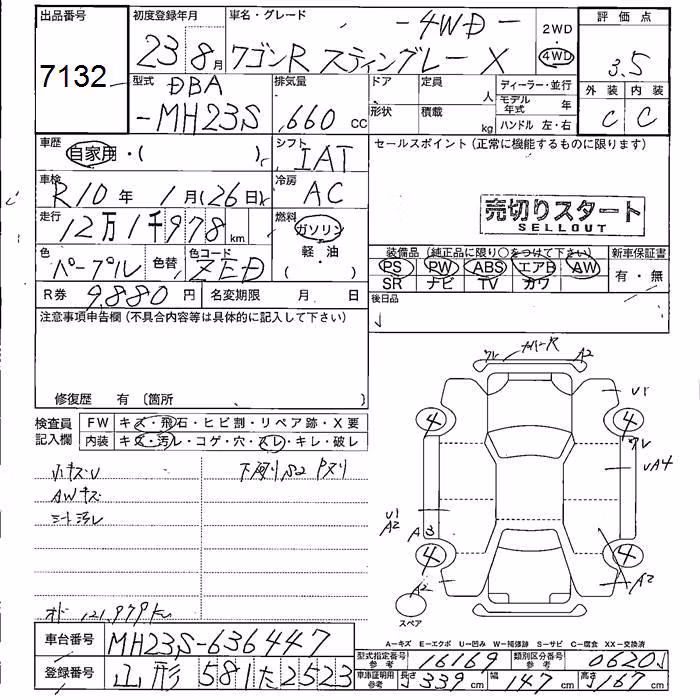 出品番号
7132
初度登録年月
23年8月
車名・グレード
-4WD-
ワゴンR スティングレー X
2WD
・
4WD
評価点
3.5
外装 内装
C C
型式
DBA
-MH23S
排気量
660 cc
ドア
形状
定員 人
積載 kg
ディーラー・並行
モデル年式 年
ハンドル 左・右
車歴
自家用・( )
シフト
IAT
セールスポイント(正常に機能するものに限ります)
車検
R10年 1月(26日)
冷房
AC
売切りスタート
SELLOUT
走行
12万1千978 km
燃料
ガソリン
軽・油
( )
色
パープル
色替
色コード
ZED
装備品(純正品に限り○をつけて下さい)
PS PW ABS エアB AW
SR ナビ TV カワ
新車保証書
有・無
R券 9,880円
名変期限 月 日
後日品
注意事項申告欄(不具合内容等は具体的に記入して下さい)
修復歴 有 〔箇所 〕
検査員
記入欄
FW キズ・飛石・ヒビ割・リペア跡・X要
内装 キズ・汚レ・コゲ・穴・スレ・キレ・破レ
小キズU
AWキズ
シート汚レ
オド 121,979km
ワレ ナンバーR A2
U1
4 4
ワレ
UA4
U1
A2
A3
4 4
A2 A2
スペア
A-キズ E-エクボ U-凹み W-補修跡 S-サビ C-腐食 XX-交換済
車台番号 MH23S-636447
登録番号 山形 581 た 2523
型式指定番号 参考 16169
類別区分番号 参考 0620
車庫証明用 参考 長さ 339cm 幅 147cm 高さ 167cm